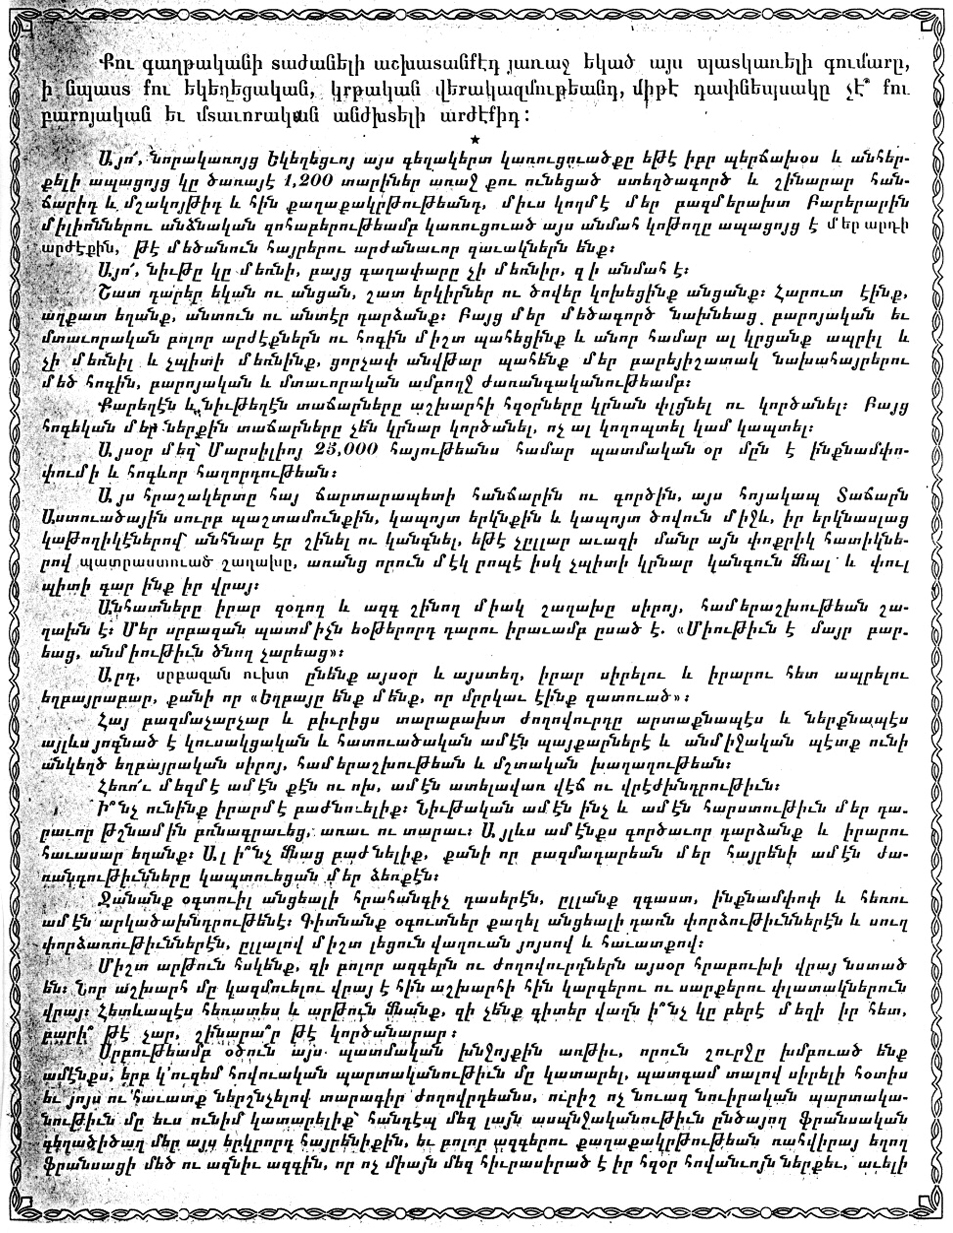 Քու գաղթականի տաժանելի աշխատանքէդ յառաջ եկած այս պատկառելի գումարը,
ի նպաստ քու եկեղեցական, կրթական վերակազմութեանդ, միթէ դափնեպսակը չէ՞ քու
բարոյական եւ մտաւորական անժխտելի արժէքիդ:
★
Այո՛, նորակառոյց Եկեղեցւոյ այս գեղակերտ կառուցուածքը եթէ իբր պերճախօս և անհեր-
քելի ապացոյց կը ծառայէ 1,200 տարիներ առաջ քու ունեցած ստեղծագործ և շինարար հան-
ճարիդ և մշակոյթիդ և հին քաղաքակրթութեանդ, միւս կողմէ մեր բազմերախտ Բարերարին
միլիոններու անձնական զոհաբերութեամբ կառուցուած այս անմահ կոթողը ապացոյց է մեր արդի
արժէքին, թէ մեծանուն հայրերու արժանաւոր զաւակներն ենք:
Այո՛, նիւթը կը մեռնի, բայց գաղափարը չի մեռնիր, զի անմահ է:
Շատ դարեր եկան ու անցան, շատ երկիրներ ու ծովեր կոխեցինք անցանք: Հարուստ էինք,
աղքատ եղանք, անտուն ու անտէր դարձանք: Բայց մեր մեծագործ նախնեաց բարոյական եւ
մտաւորական բոլոր արժէքներն ու հոգին միշտ պահեցինք և անոր համար ալ կրցանք ապրիլ և
չի մեռնիլ և չպիտի մեռնինք, ցորչափ անվթար պահենք մեր բարեյիշատակ նախահայրերու
մեծ հոգին, բարոյական և մտաւորական ամբողջ ժառանգականութեամբ:
Քարեղէն և նիւթեղէն տաճարները աշխարհի հզօրները կրնան փլցնել ու կործանել: Բայց
հոգեկան մեր ներքին տաճարները չեն կրնար կործանել, ոչ ալ կողոպտել կամ կապտել:
Այսօր մեզ՝ Մարսիլիոյ 25,000 հայութեանս համար պատմական օր մըն է ինքնամփո-
փումի և հոգևոր հաղորդութեան:
Այս հրաշակերտը հայ ճարտարապետի հանճարին ու գործին, այս հոյակապ Տաճարն
Աստուածային սուրբ պաշտամունքին, կապոյտ երկնքին և կապոյտ ծովուն միջև, իր երկնասլաց
կաթողիկէներով անհնար էր շինել ու կանգնել, եթէ չըլլար աւազի մանր այն փոքրիկ հատիկնե-
րով պատրաստուած շաղախը, առանց որուն մէկ րոպէ իսկ չպիտի կրնար կանգուն մնալ և փուլ
պիտի գար ինք իր վրայ:
Անհատները իրար զօդող և ազգ շինող միակ շաղախը սիրոյ, համերաշխութեան շա-
ղախն է: Մեր սրբազան պատմիչն եօթերորդ դարու իրաւամբ ըսած է. «Միութիւն է մայր բար-
եաց, անմիութիւն ծնող չարեաց»:
Արդ, սրբազան ուխտ ընենք այսօր և այստեղ, իրար սիրելու և իրարու հետ ապրելու
եղբայրաբար, քանի որ «Եղբայր ենք մենք, որ մրրկաւ էինք զատուած»:
Հայ բազմաչարչար և բիւրիցս տարաբախտ ժողովուրդը արտաքնապէս և ներքնապէս
այլևս յոգնած է կուսակցական և հատուածական ամէն պայքարներէ և անմիջական պէտք ունի
անկեղծ եղբայրական սիրոյ, համերաշխութեան և մշտական խաղաղութեան:
Հեռո՜ւ մեզմէ ամէն քէն ու ոխ, ամէն ատելավառ վէճ ու վրէժխնդրութիւն:
Ի՞նչ ունինք իրարմէ բաժնուելիք: Նիւթական ամէն ինչ և ամէն հարստութիւն մեր դա-
րաւոր թշնամին բռնագրաւեց, առաւ ու տարաւ: Այլևս ամէնքս գործաւոր դարձանք և իրարու
հաւասար եղանք: Ալ ի՞նչ մնաց բաժնելիք, քանի որ բազմադարեան մեր հայրենի ամէն ժա-
ռանգութիւնները կապտուեցան մեր ձեռքէն:
Ջանանք օգտուիլ անցեալի հրահանգիչ դասերէն, ըլլանք զգաստ, ինքնամփոփ և հեռու
ամէն արկածախնդրութենէ: Գիտնանք օգուտներ քաղել անցեալի դառն փորձութիւններէն և սուղ
փորձառութիւններէն, ըլլալով միշտ լեցուն վաղուան յոյսով և հաւատքով:
Միշտ արթուն հսկենք, զի բոլոր ազգերն ու ժողովուրդներն այսօր հրաբուխի վրայ նստած
են: Նոր աշխարհ մը կազմուելու վրայ է հին աշխարհի հին կարգերու ու սարքերու փլատակներուն
վրայ: Հետևապէս հեռատես և արթուն մնանք, զի չենք գիտեր վաղն ի՞նչ կը բերէ մեզի իր հետ,
բարի՞ թէ չար, շինարա՞ր թէ կործանարար:
Սրբութեամբ օծուն այս պատմական խնջոյքին առթիւ, որուն շուրջը խմբուած ենք
ամէնքս, երբ կ՚ուզեմ հովուական պարտականութիւն մը կատարել, պատգամ տալով սիրելի հօտիս
եւ յոյս ու հաւատք ներշնչելով տարագիր ժողովրդեանս, ուրիշ ոչ նուազ նուիրական պարտակա-
նութիւն մը եւս ունիմ կատարելիք՝ հանդէպ մեզ լայն ասպնջականութիւն ընծայող ֆրանսական
գեղածիծաղ մեր այս երկրորդ հայրենիքին, եւ բոլոր ազգերու քաղաքակրթութեան ռահվիրայ եղող
ֆրանսացի մեծ ու ազնիւ ազգին, որ ոչ միայն մեզ հիւրասիրած է իր հզօր հովանւոյն ներքեւ, աւելի